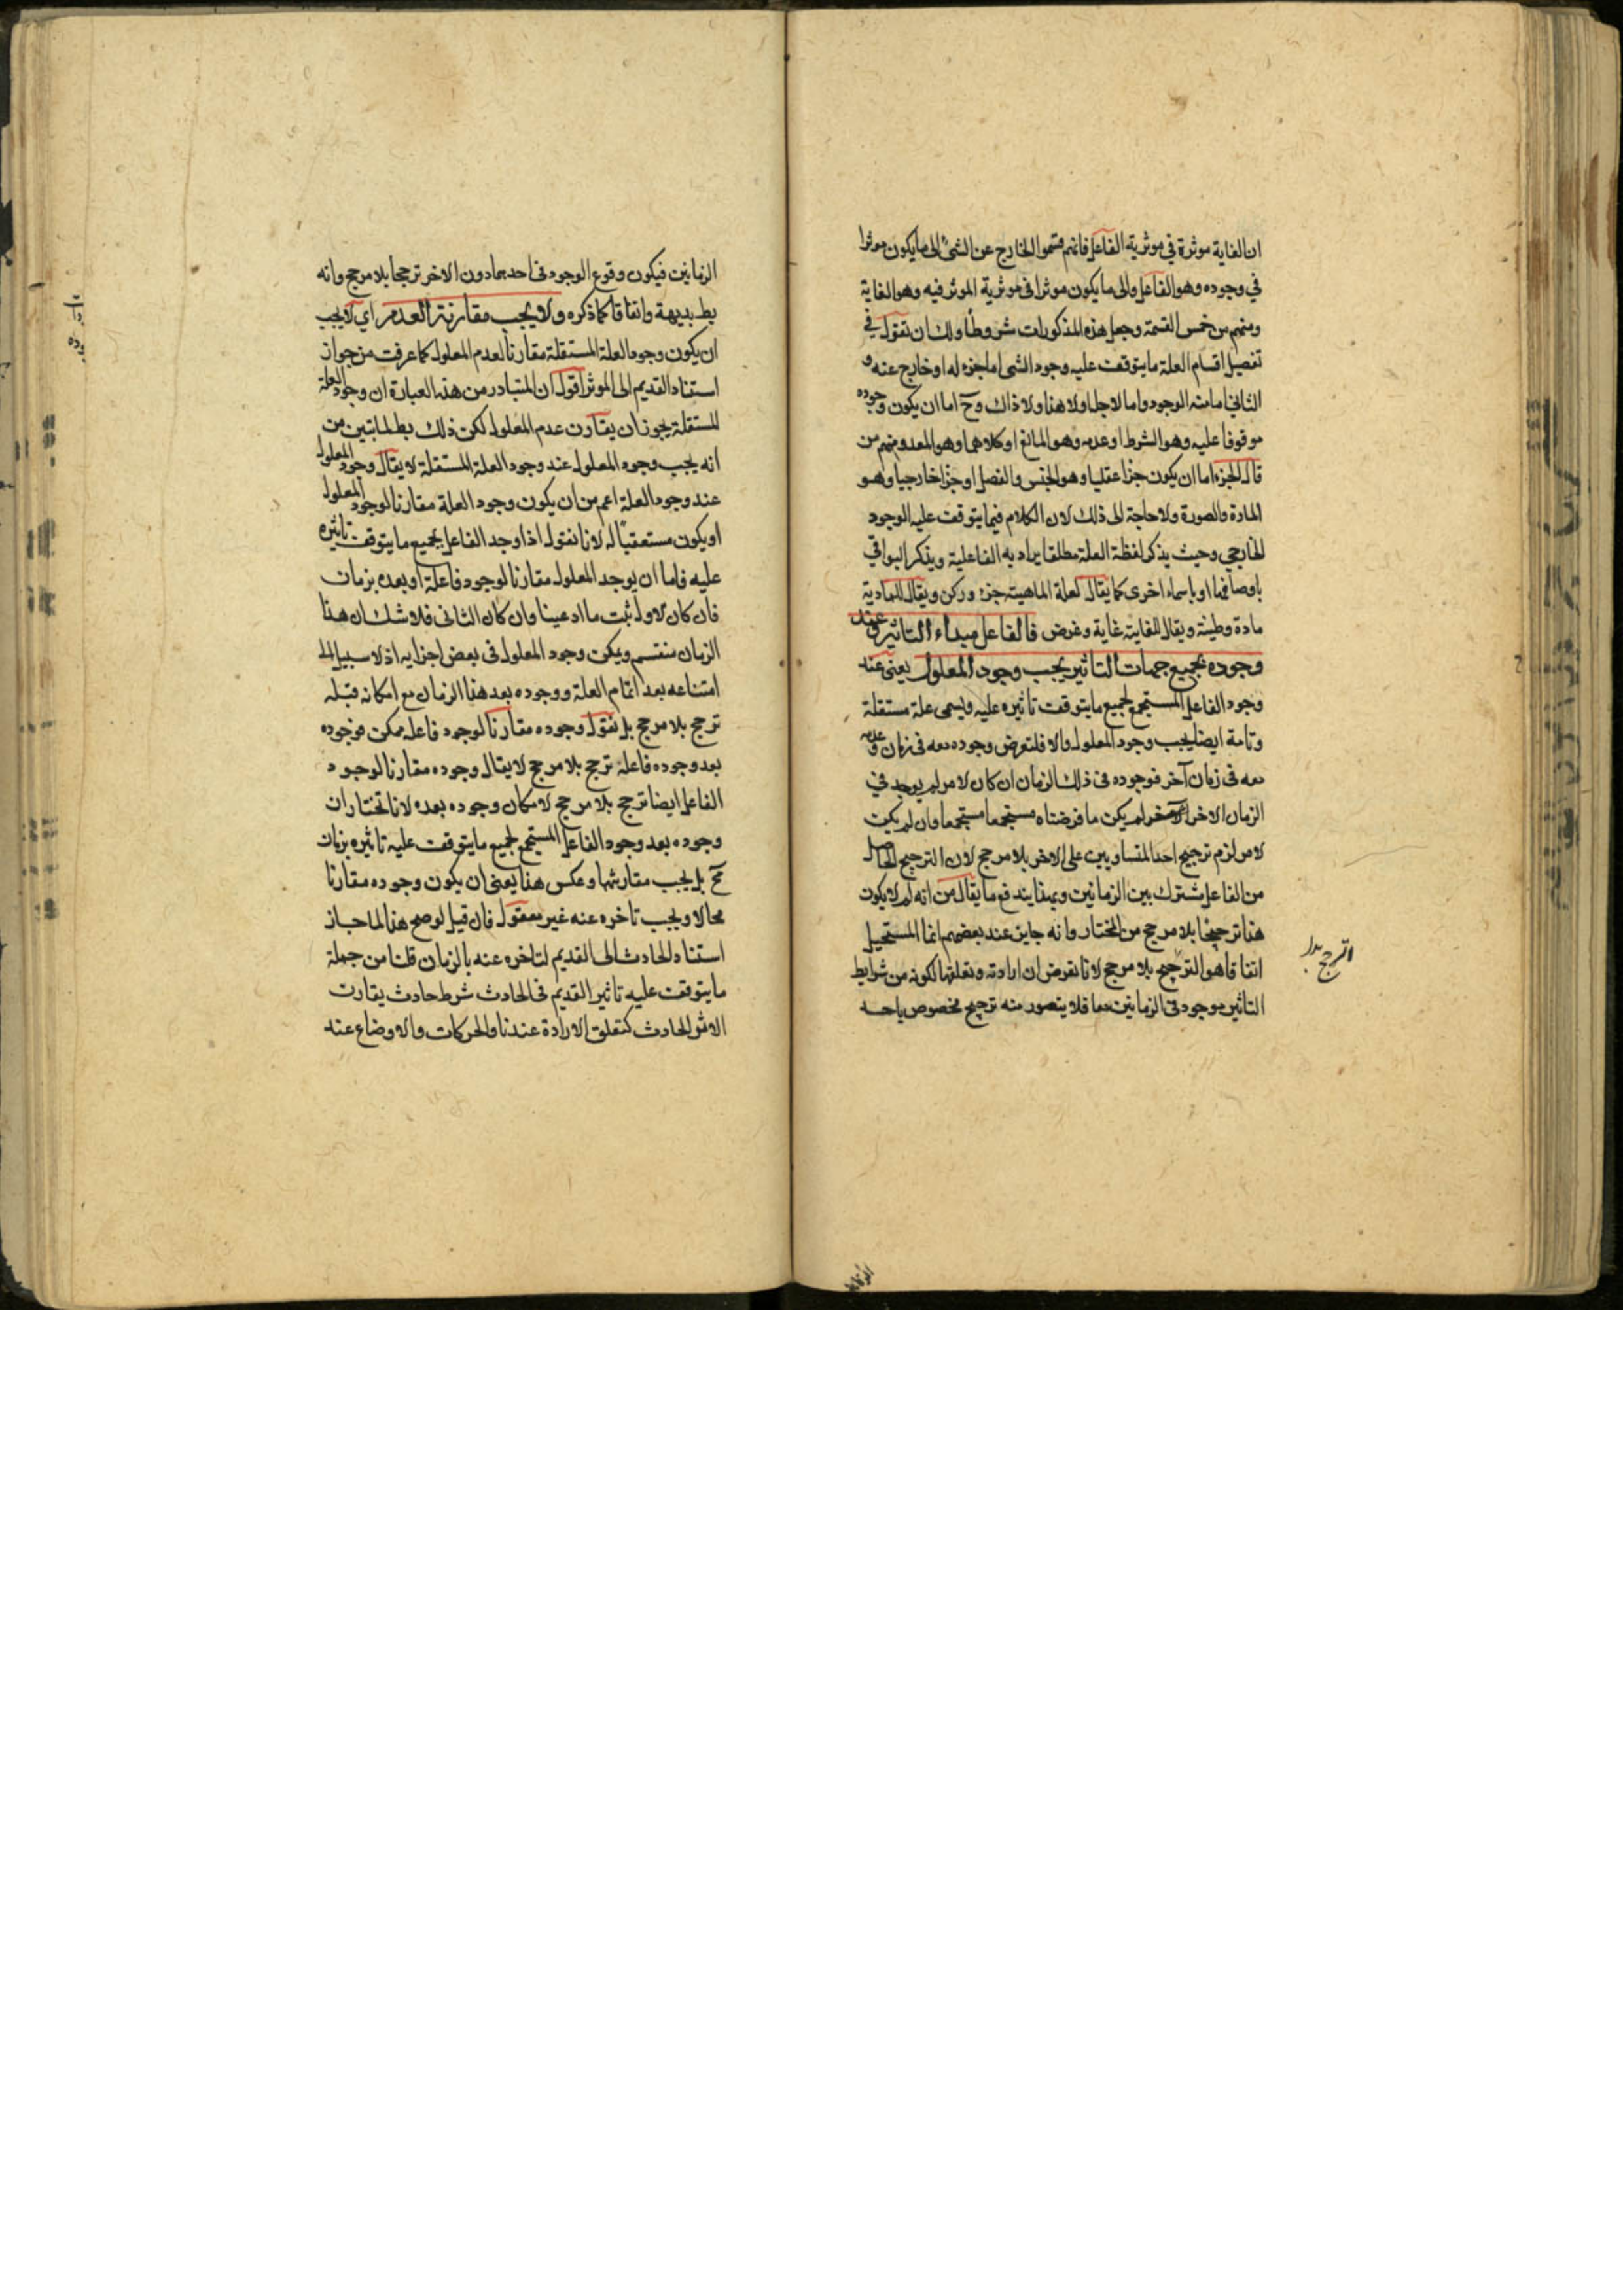 ان الغاية موثرة في موثرية الفاعل فانهم قسموا الخارج عن الشئ الى ما يكون موثرا
في وجوده وهو الفاعل والى ما يكون موثرا فى موثرية الموثر فيه وهو الغاية
ومنهم من خمس القسمة وجعل هذه المذكورات شروطا ولك ان تقول في
تفصيل اقسام العلة ما يتوقف عليه وجود الشى اما جزء له او خارج عنه و
الثانى اما منه الوجود واما لاجله او لا هذا ولا ذاك وح اما ان يكون وجوده
موقوفا عليه وهو الشرط او عدمه وهو المانع او كلاهما وهو المعد ومنهم من
قال الجزء اما ان يكون جزا عقليا وهو الجنس والفصل او جزا خارجيا وهو
المادة والصورة ولا حاجة الى ذلك لان الكلام فيما يتوقف عليه الوجود
الخارجي وحيث يذكر لفظة العلة مطلقا يراد به الفاعلية ويذكر البواقي
باوصافها او باسماء اخرى كما يقال لعلة الماهية جزء وركن ويقال للمادية
مادة وطينة ويقال للغاية غاية وغرض فالفاعل مبداء التاثير وعند
وجوده بجميع جهات التاثير يجب وجود المعلول يعنى عند
وجود الفاعل المستجمع لجميع ما يتوقف تاثيره عليه ويسمى علة مستقلة
وتامة ايضا يجب وجود المعلول والا فلنفرض وجوده معه فى زمان وعدمه
معه فى زمان آخر فوجوده فى ذلك الزمان ان كان لامر لم يوجد في
الزمان الاخر لم يكن ما فرضناه مستجمعا مستجمعا وان لم يكن
لامر لزم ترجيح احد المتساويين على الاخر بلا مرجح لان الترجيح الحاصل
من الفاعل مشترك بين الزمانين وبهذا يندفع ما يقال من انه لم لا يكون
هذا ترجيحا بلا مرجح من المختار وانه جايز عند بعضهم انما المستحيل
اتفاقا هو الترجح بلا مرجح لانا نفرض ان ارادته وتعلقها لكونه من شرايط
التاثير موجود فى الزمانين معا فلا يتصور منه ترجيح مخصوص باحد
الزمانين فيكون وقوع الوجود فى احدهما دون الاخر ترجحا بلا مرجح وانه
بط بديهة واتفاقا كما ذكره ولا يجب مقارنة العدم اي لا يجب
ان يكون وجود العلة المستقلة مقارنا لعدم المعلول كما عرفت من جواز
استناد القديم الى الموثر اقول ان المتبادر من هذه العبارة ان وجود العلة
المستقلة يجوز ان يقارن عدم المعلول لكن ذلك بط لما بتين من
انه يجب وجود المعلول عند وجود العلة المستقلة لا يقال وجود المعلول
عند وجود العلة اعم من ان يكون وجود العلة مقارنا لوجود المعلول
او يكون مستعقبا له لانا نقول اذا وجد الفاعل بجميع ما يتوقف تاثيره
عليه فاما ان يوجد المعلول مقارنا لوجود فاعله او بعده بزمان
فان كان لاول ثبت ما ادعينا وان كان الثانى فلا شك ان هذا
الزمان منقسم ويمكن وجود المعلول فى بعض اجزايه اذ لا سبيل الى
امتناعه بعد اتمام العلة ووجوده بعد هذا الزمان مع امكانه قبله
ترجح بلا مرجح بل نقول وجوده مقارنا لوجود فاعله ممكن فوجوده
بعد وجود فاعله ترجح بلا مرجح لا يقال وجوده مقارنا لوجود
الفاعل ايضا ترجح بلا مرجح لامكان وجوده بعده لانا نختار ان
وجوده بعد وجود الفاعل المستجمع لجميع ما يتوقف عليه تاثيره بزمان
مح بل يجب مقارنتها وعكس هذا يعنى ان يكون وجوده مقارنا
محالا ويجب تاخره عنه غير معقول فان قيل لو صح هذا لما جاز
استناد الحادث الى القديم لتاخره عنه بالزمان قلنا من جملة
ما يتوقف عليه تاثير القديم فى الحادث شرط حادث يقارن
الاثر الحادث كتعلق الارادة عندنا والحركات والاوضاع عند